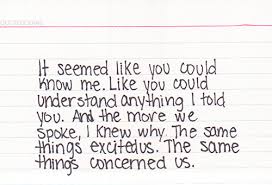 It seemed like you could
know me. Like you could
understand anything I told
you. And the more we
spoke, I knew why. The same
things excited us. The same
things concerned us.